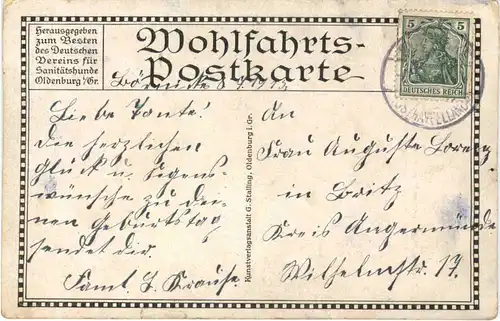 Herausgegeben
zum Besten
des Deutschen
Vereins für
Sanitätshunde
Oldenburg i/Gr.
Wohlfahrts-
Postkarte
5 5
DEUTSCHES REICH
Liebe Tante!
Die herzlichen
Glück u. Segens-
wünsche zu dei-
nen Geburtstag
sendet dir.
Faml. J. Krause
Kunstverlagsanstalt G. Stalling, Oldenburg i. Gr.
An
Frau Auguste Lorenz
in Britz
Kreis Angermünde
Wilhelmstr. 17.